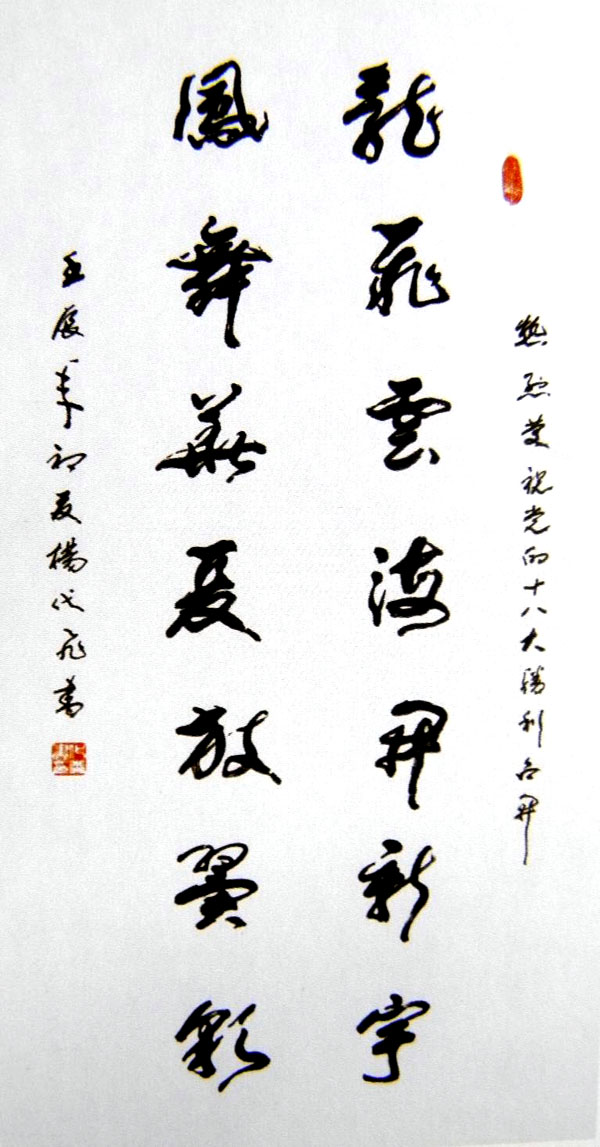 熱烈慶祝党的十八大勝利召開
龍飛雲海開新宇
鳳舞華夏放異彩
壬辰年初夏楊代飛書